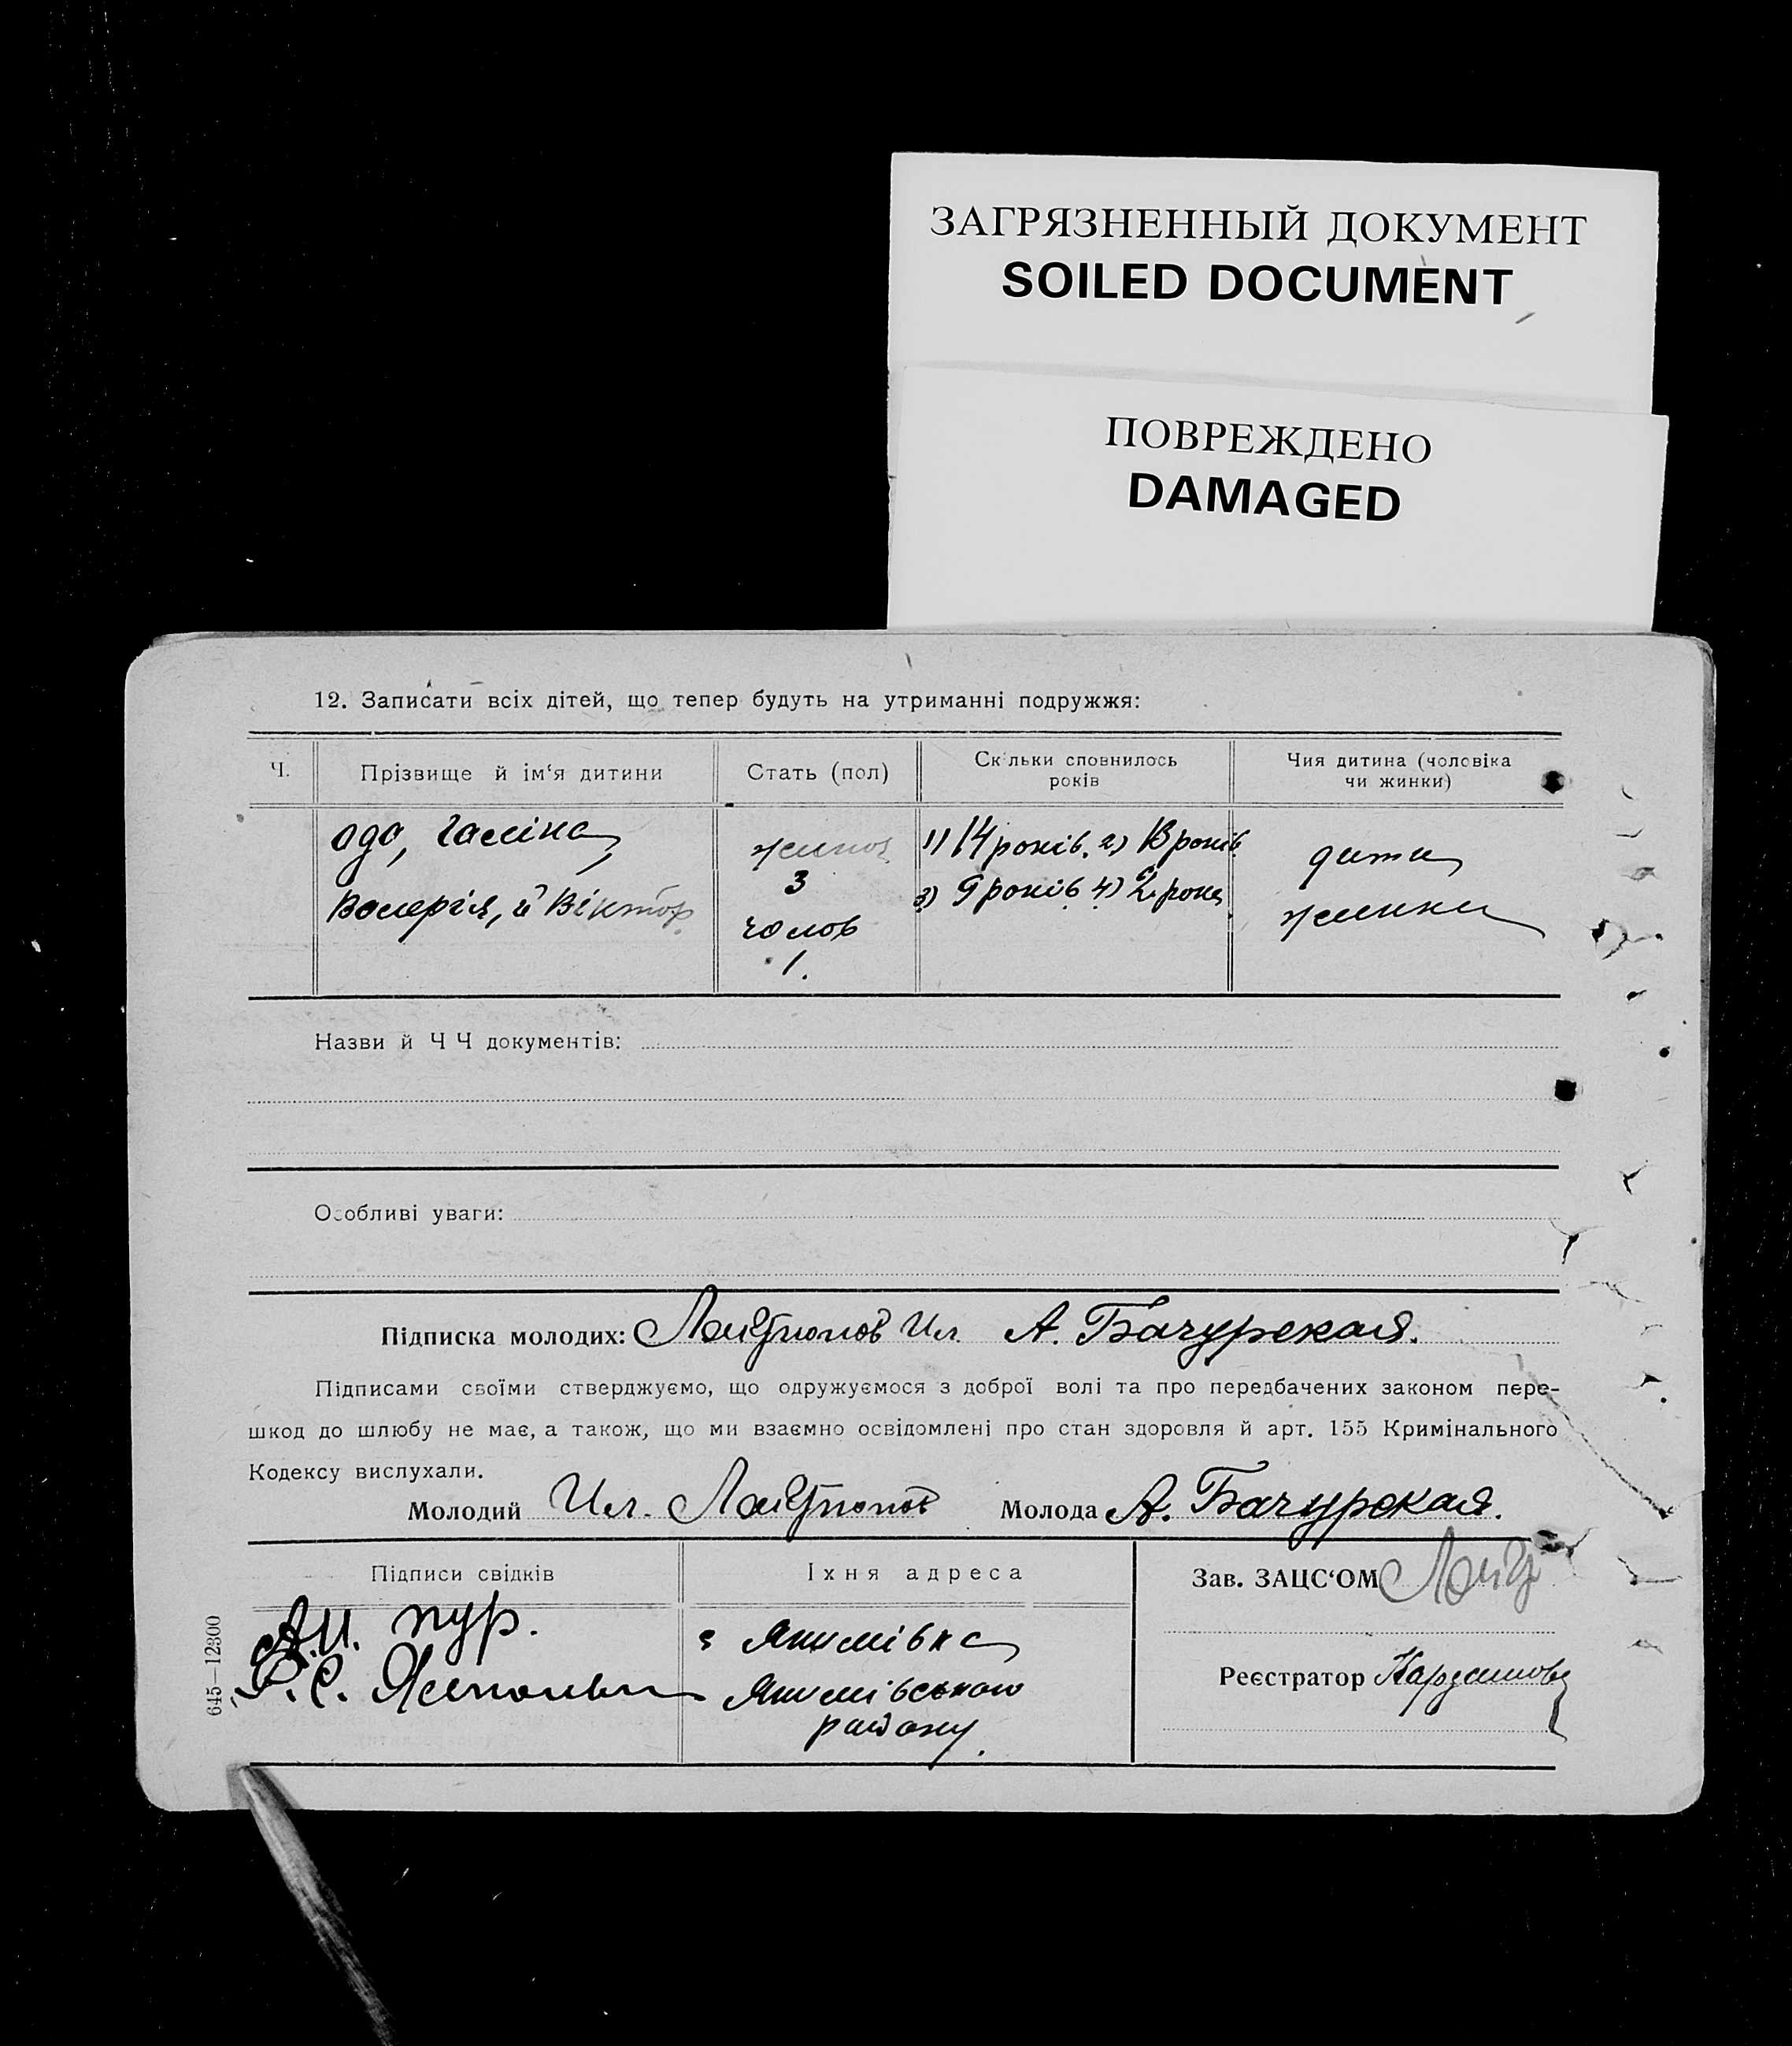 ЗАГРЯЗНЕННЫЙ ДОКУМЕНТ
SOILED DOCUMENT
ПОВРЕЖДЕНО
DAMAGED
12. Записати всіх дітей, що тепер будуть на утриманні подружжя:
Ч.
Прізвище й ім'я дитини
Стать (пол)
Скільки сповнилось
років
Чия дитина (чоловіка
чи жинки)
Ада, Галіна,
Валерія, й Віктор.
жіноч.
3
чолов
1.
1) 14 років. 2) 13 років.
3) 9 років 4) 2 роки
дити
жинки
Назви й Ч Ч документів:
Особливі уваги:
Підписка молодих: Ил А. Бачурская.
Підписами своїми стверджуємо, що одружуємося з доброї волі та про передбачених законом пере-
шкод до шлюбу не має, а також, що ми взаємно освідомлені про стан здоровля й арт. 155 Кримінального
Кодексу вислухали.
Молодий Ил. Молода А. Бачурская.
Підписи свідків
Їхня адреса
Зав. ЗАЦС'ОМ
А.И.
с Якимівка
Якимівського
району.
Реєстратор
645—12300